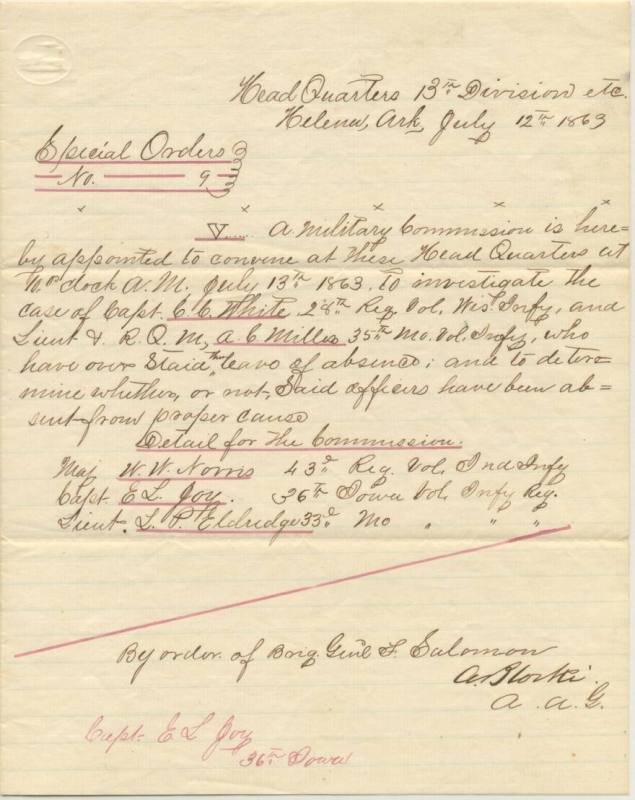 Head Quarters 13th Division etc.
Helena, Ark, July 12th 1863
Special Orders
No. 9
x x x x
V.... A Military Commission is here=
by appointed to convene at these Head Quarters at
10 oclock A.M. July 13th 1863. to investigate the
case of Capt. C. C. White, 28th Reg. Vol. Wis. Infy, and
Lieut & R. Q. M, A. C Miller 35th Mo. Vol. Infy, who
have over Staid their leave of absence; and to deter=
mine whether, or not, Said officers have been ab=
sent from proper cause
Detail for the Commission.
Maj W. W. Norris 43d Reg. Vol. Ind Infy
Capt. E L. Joy. 36th Iowa Vol. Infy Reg.
Lieut. L. P. Eldridge 33d Mo " " "
By order of Brig. Genl F. Salomon
A. Blocki.
A. A. G.
Capt. E L Joy
36th Iowa